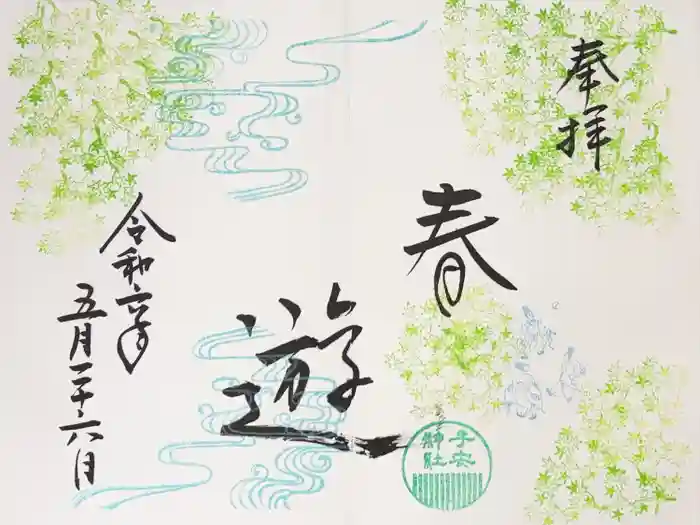 奉拝
春
遊
子安
神社
令和六年
五月二十六日